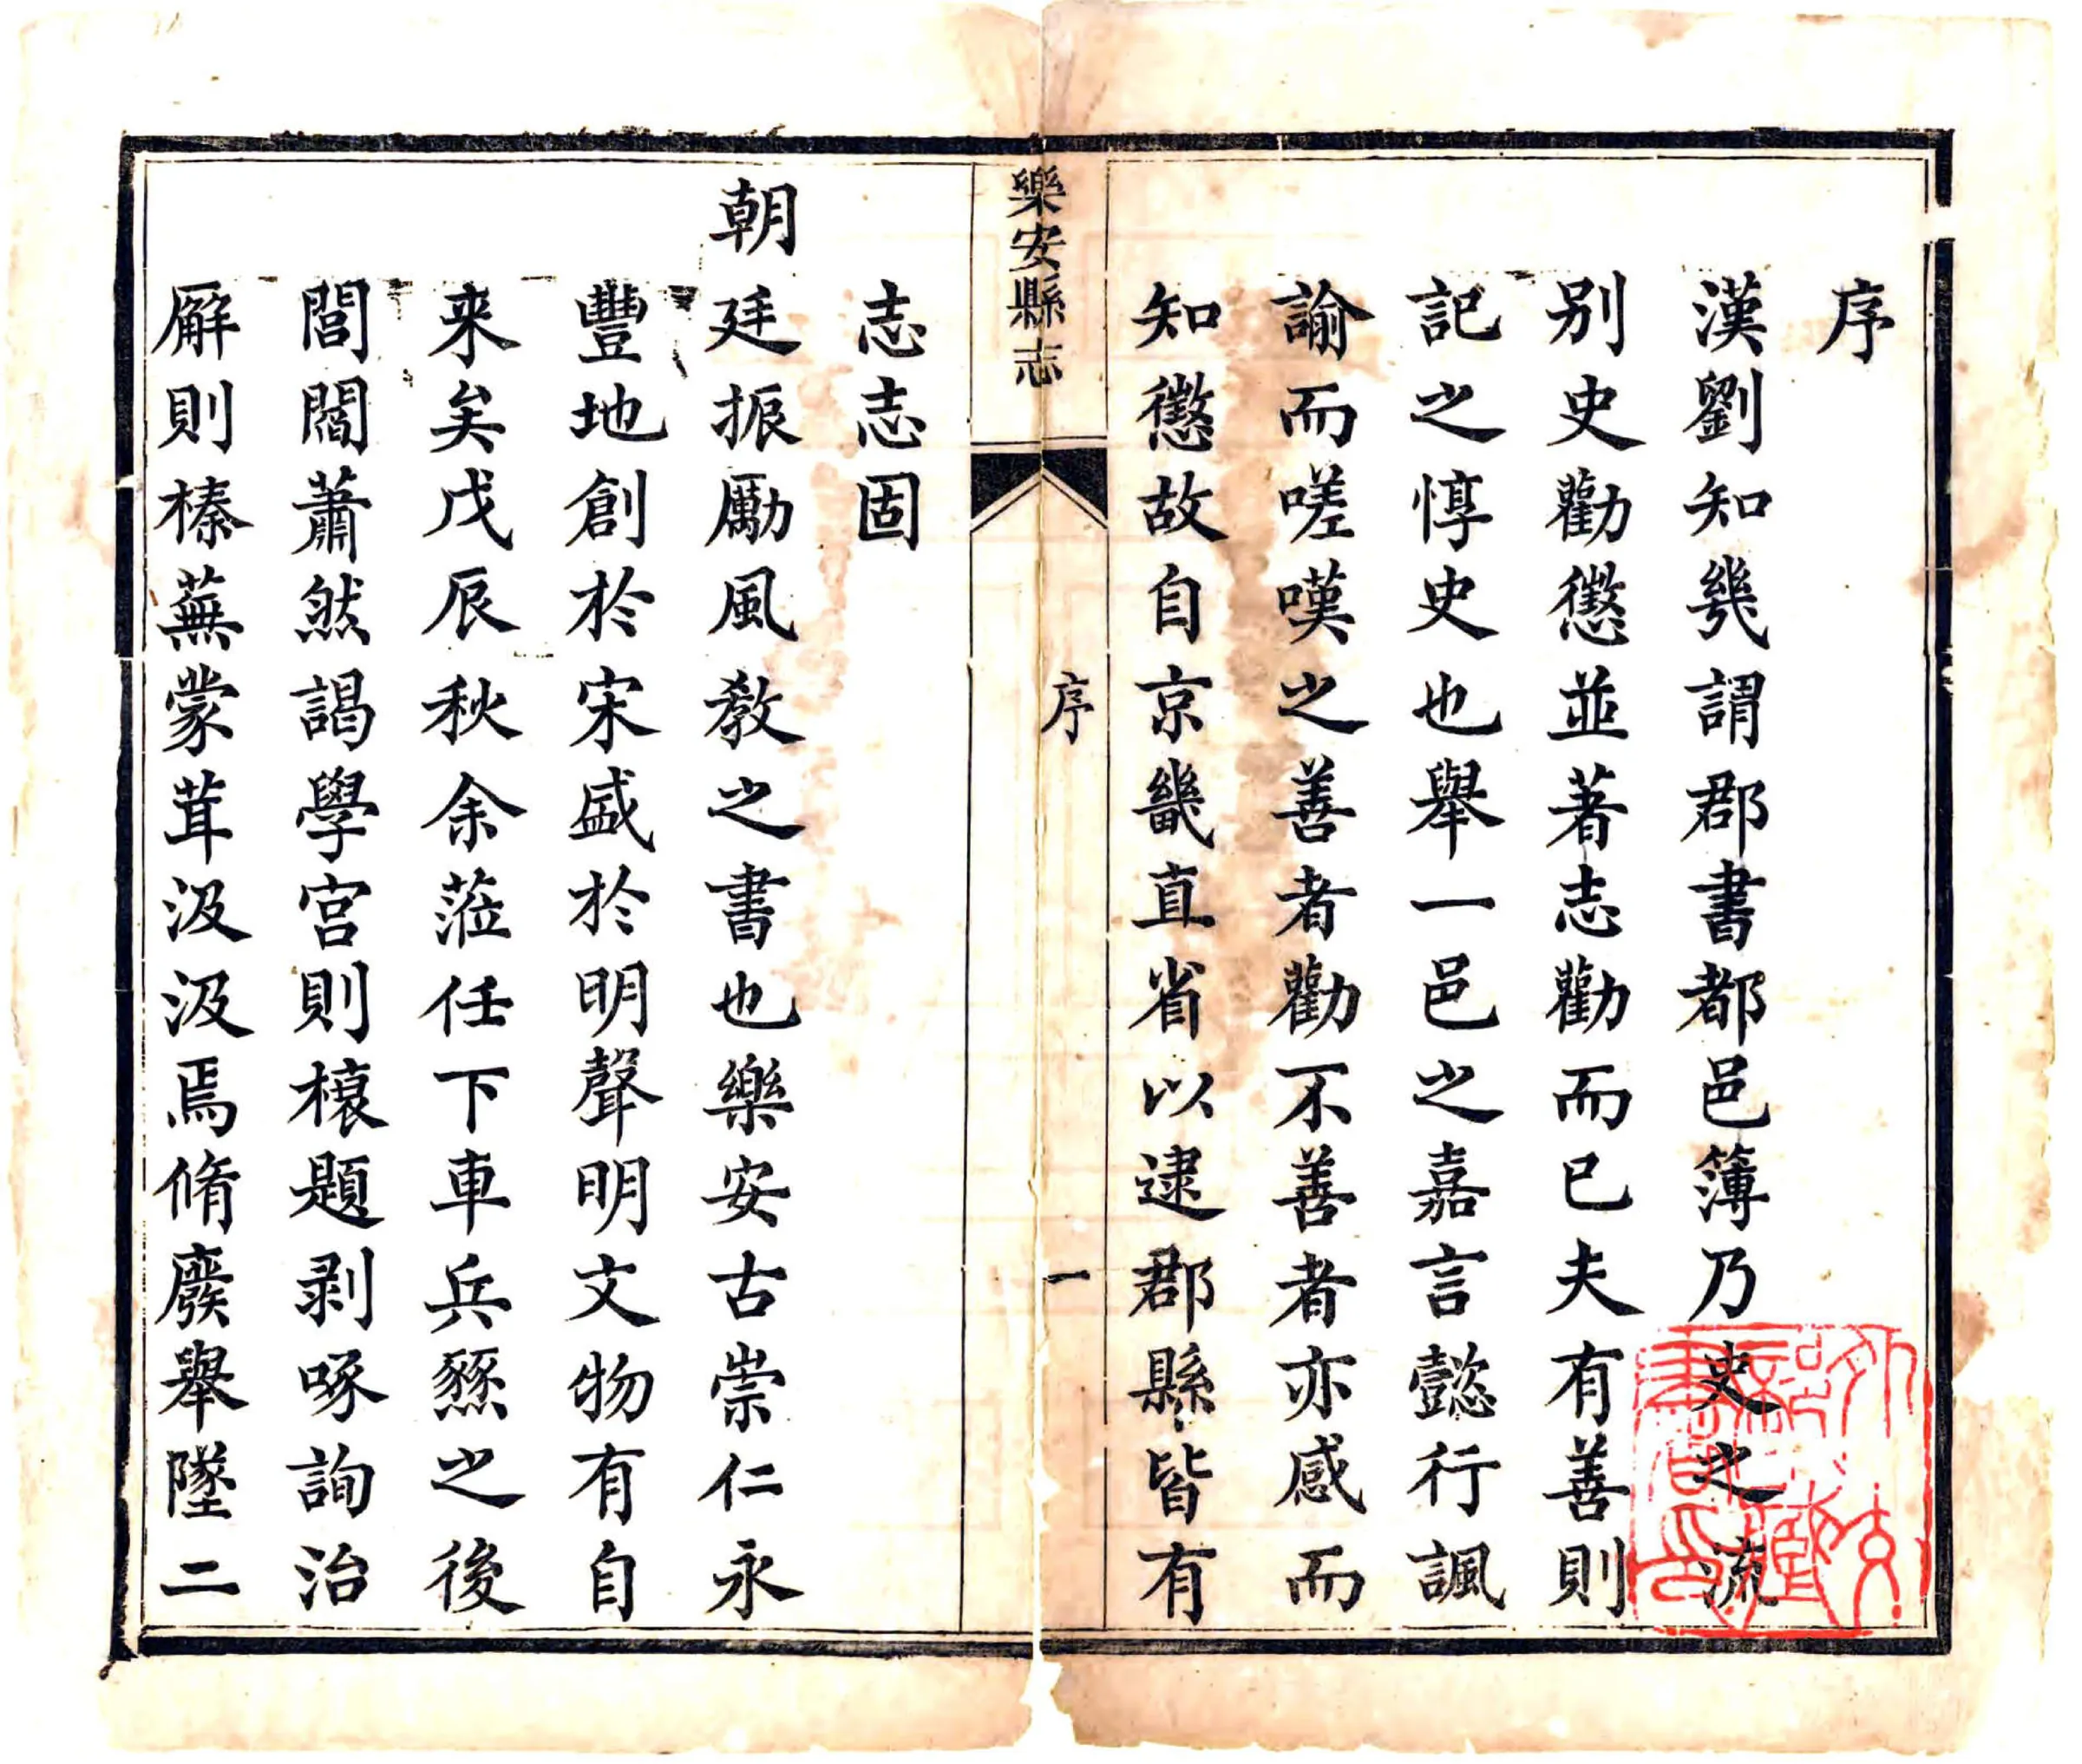 序
漢劉知幾謂郡書都邑簿乃史之流
别史勸懲並著志勸而已夫有善則
記之惇史也舉一邑之嘉言懿行諷
諭而嗟嘆之善者勸不善者亦感而
知懲故自京畿直省以逮郡縣皆有
樂安縣志
序
一
志志固
朝廷振勵風教之書也樂安古崇仁永
豐地創於宋盛於明聲明文物有自
来矣戊辰秋余蒞任下車兵燹之後
閭閻蕭然謁學宮則榱題剥啄詢治
廨則榛蕪蒙茸汲汲焉脩廢舉墜二